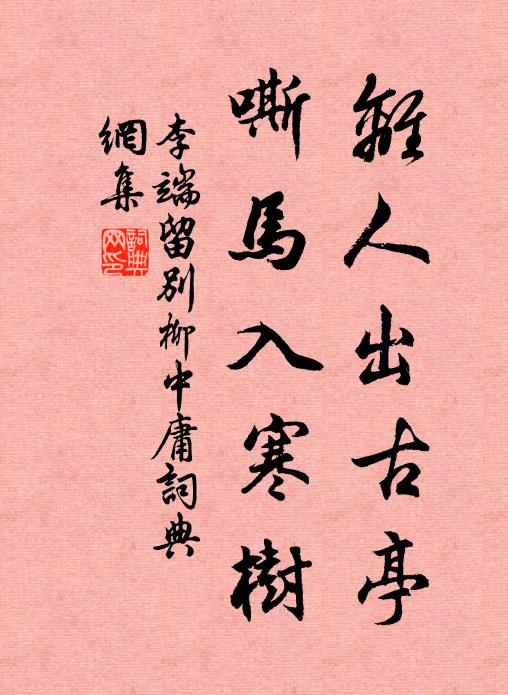 離人出古亭
嘶馬入寒樹
李端留別柳中庸詞典
網集
詞典
网印